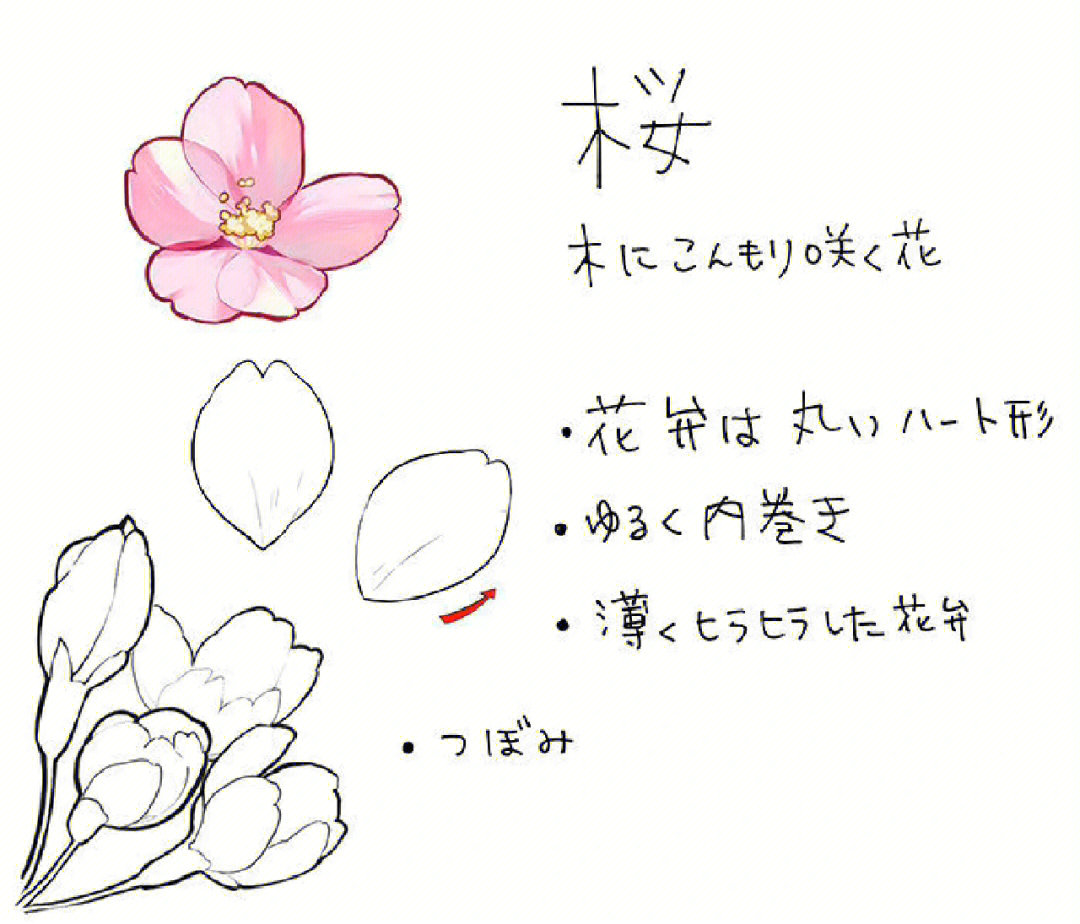 桜
木にこんもり咲く花
・花弁は丸いハート形
・ゆるく内巻き
・薄くヒラヒラした花弁
・つぼみ